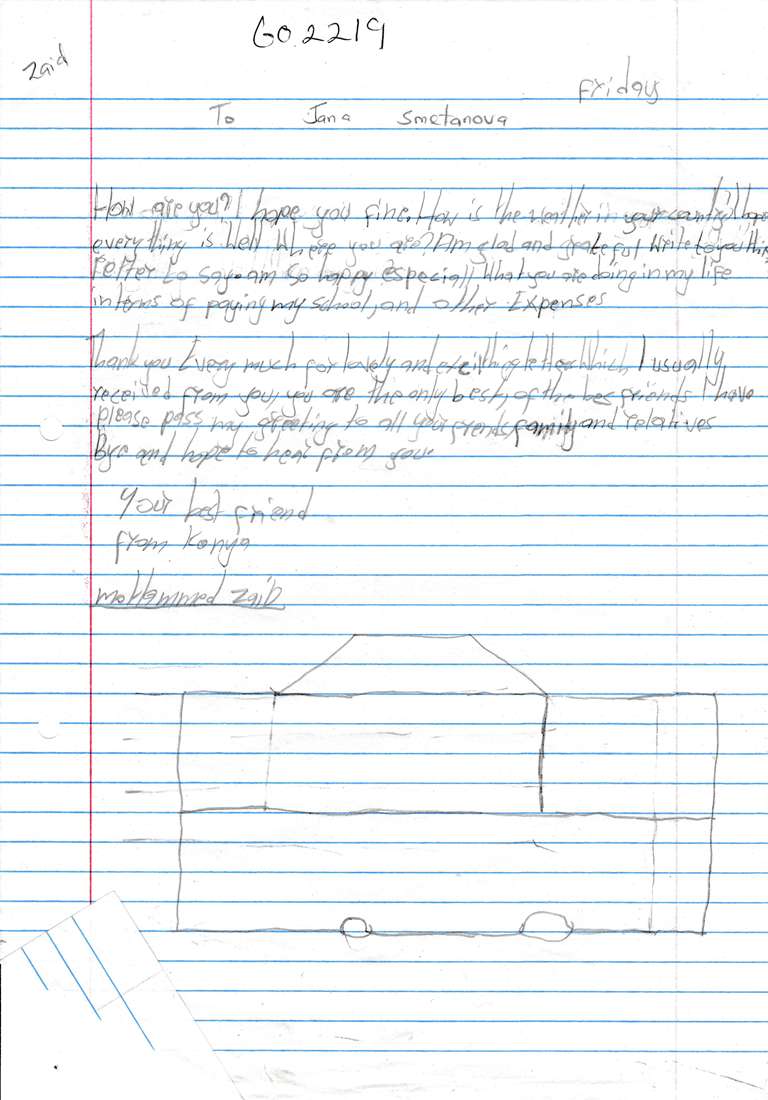 GO.2219
Zaid
Friday
To Jana Smetanova
How are you? I hope you fine. How is the weather in your country? I hope
everything is well where you are? Am glad and grateful write to you this
letter to say am so happy especiall what you are doing in my life
interms of paying my school, and other Expenses
Thank you Every much for lovely and letter which I usually
received from you, you are the only best, of the friends I have
please pass my greeting to all your friends family and relatives
Bye and hope to hear from you.
Your best friend
from Kenya
mohammed zaid